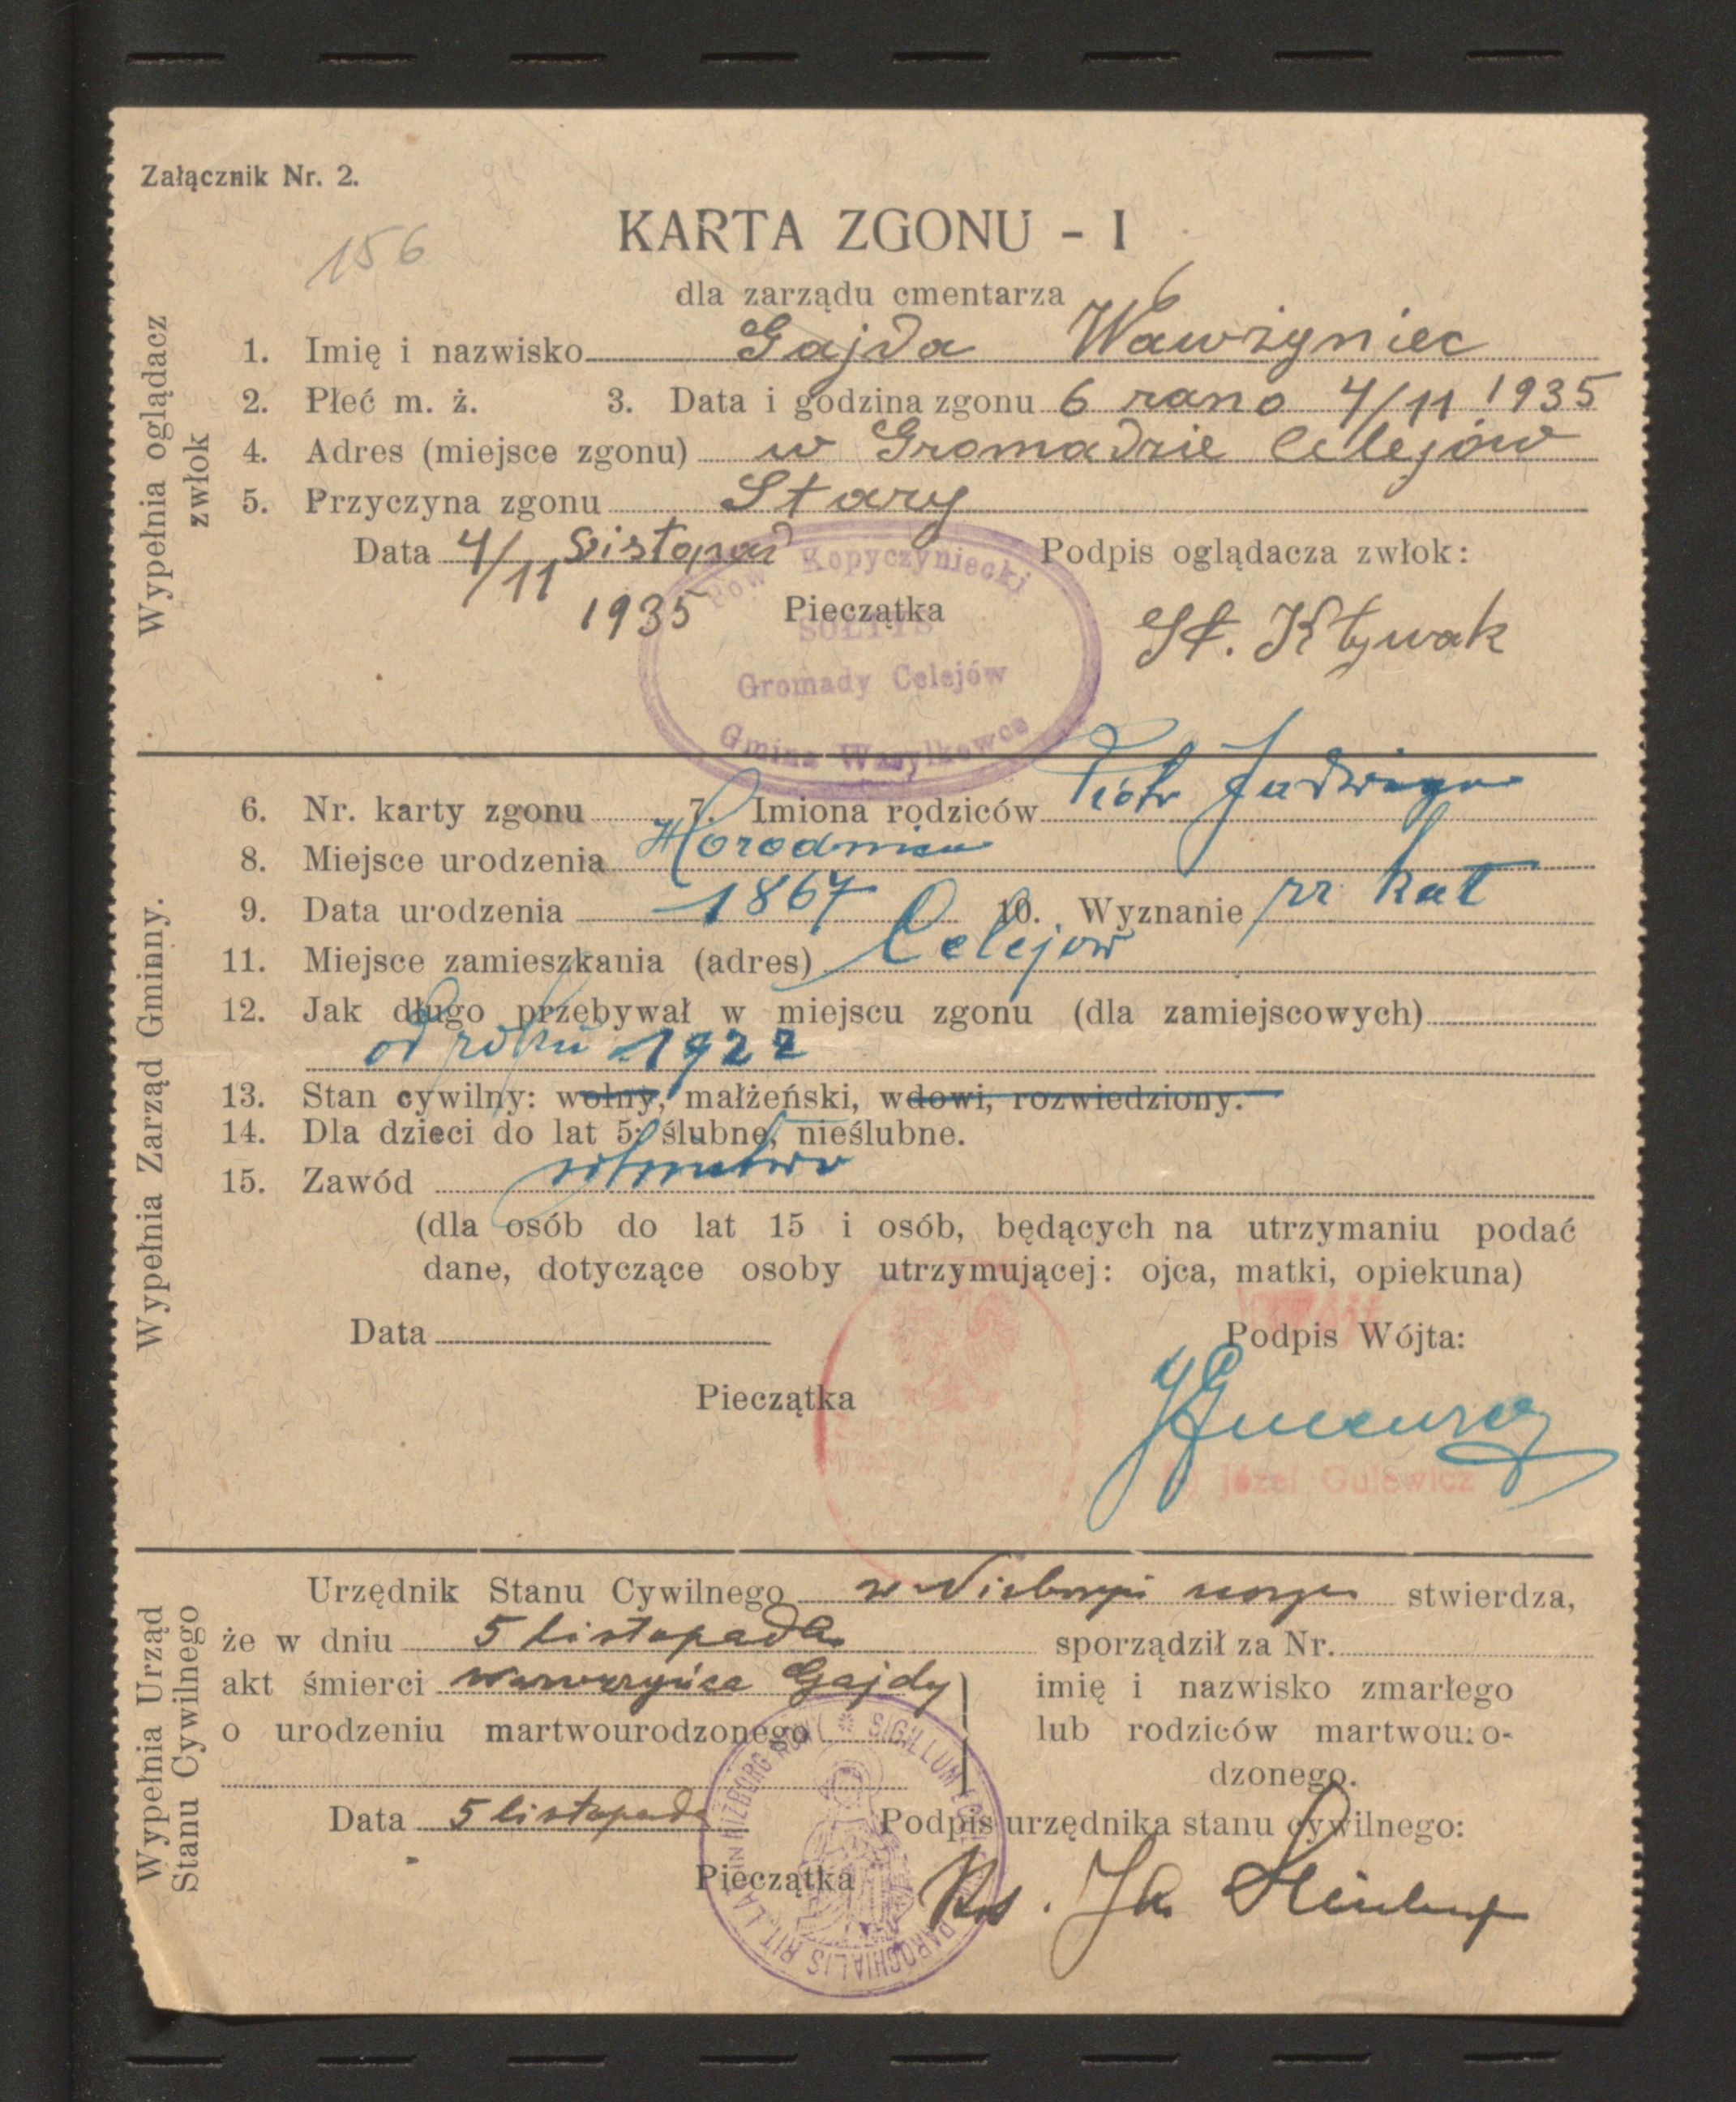 Załącznik Nr. 2.
156
KARTA ZGONU - I
dla zarządu cmentarza
Wypełnia oglądacz zwłok
1. Imię i nazwisko Gajda Wawrzyniec
2. Płeć m. ż. 3. Data i godzina zgonu 6 rano 4/11 1935
4. Adres (miejsce zgonu) w Gromadzie Celejów
5. Przyczyna zgonu Stary
Data 4/11 Listopad Podpis oglądacza zwłok:
1935 Pieczątka
St.
Pow. Kopyczyniecki
SOŁTYS
Gromady Celejów
Gmina Wasylkowce
Wypełnia Zarząd Gminny.
6. Nr. karty zgonu 7. Imiona rodziców Piotr Jadwiga
8. Miejsce urodzenia Horodnica
9. Data urodzenia 1867 10. Wyznanie rz kat
11. Miejsce zamieszkania (adres) Celejow
12. Jak długo przebywał w miejscu zgonu (dla zamiejscowych)
od roku 1922
13. Stan cywilny: wolny, małżeński, wdowi, rozwiedziony.
14. Dla dzieci do lat 5: ślubne, nieślubne.
15. Zawód rolnictwo
(dla osób do lat 15 i osób, będących na utrzymaniu podać
dane, dotyczące osoby utrzymującej: ojca, matki, opiekuna)
Data Podpis Wójta:
Wójt
Pieczątka
Józef Gulewicz
Wypełnia Urząd Stanu Cywilnego
Urzędnik Stanu Cywilnego w stwierdza,
że w dniu 5 listopada sporządził za Nr.
akt śmierci Wawrzyńca Gajdy imię i nazwisko zmarłego
o urodzeniu martwourodzonego lub rodziców martwouro-
dzonego.
Data 5 listopada Podpis urzędnika stanu cywilnego:
Pieczątka
Ks.
SIGILLUM PAROCHIALIS RIT. LAT. IN NIŻBORG NOWY